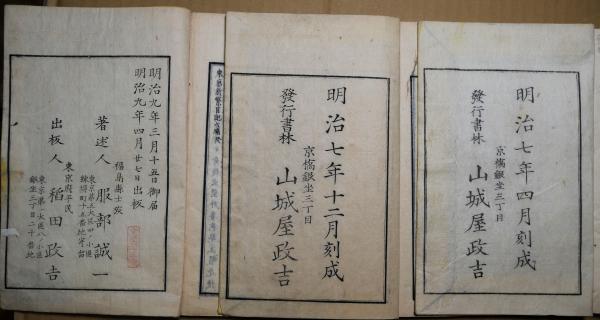 明治七年四月刻成
京橋銀坐三丁目
發行書林 山城屋政吉
明治七年十二月刻成
京橋銀坐三丁目
發行書林 山城屋政吉
明治九年三月十五日御届
明治九年四月廿七日出板
福島縣士族
著述人 服部誠一
東京第五大區四ノ小區
東京府平民
出板人 稲田政吉
東京第一大區八ノ小區
銀坐三丁目二十番地